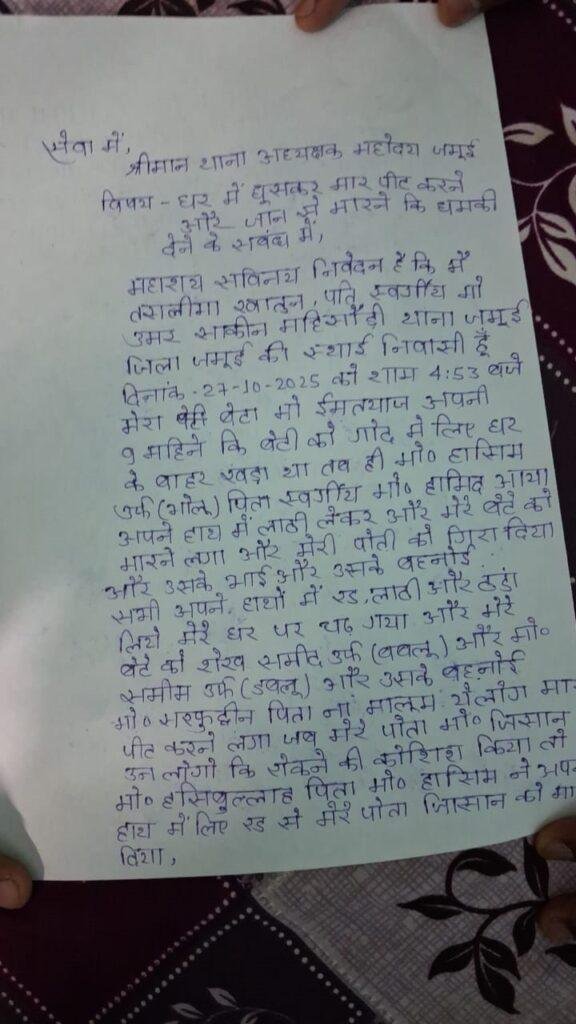 सेवा में,
श्रीमान थाना अध्यक्षक महोदय जमुई
विषय - घर में घुसकर मार पीट करने
और जान से मारने कि धमकी
देने के सबंध में,
महाशय सविनय निवेदन है कि मैं
तसलीमा खातुन, पति स्वर्गीय मो
उमर साकीन महिसौड़ी थाना जमुई
जिला जमुई की स्थाई निवासी हूँ
दिनांक - 27-10-2025 को शाम 4:53 बजे
मेरा बेटा मो ईमतयाज अपनी
9 महिने कि बेटी को गोद मे लिए घर
के बाहर खड़ा था तब ही मो० हासिम
उर्फ (भोलू) पिता स्वर्गीय मो० हामिद आया
अपने हाथ में लाठी लेकर और मेरे बेटे को
मारने लगा और मेरी पोती को गिरा दिया
और उसके भाई और उसके बहनोई
सभी अपने हाथों में रड, लाठी और डंडा
लिये मेरे घर पर चढ़ गया और मेरे
बेटे को शेख समीद उर्फ (बबलू) और मो०
समीम उर्फ (डबलू) और उसके बहनोई
मो० सरफुद्दीन पिता ना मालूम येलोग मार
पीट करने लगा जब मेरे पोता मो० जिसान
उन लोगो कि रोकने की कोशिश किया तो
मो० हसिबुल्लाह पिता मो० हासिम ने अप
हाथ में लिए रड से मेरे पोता जिसान को मा
दिया,